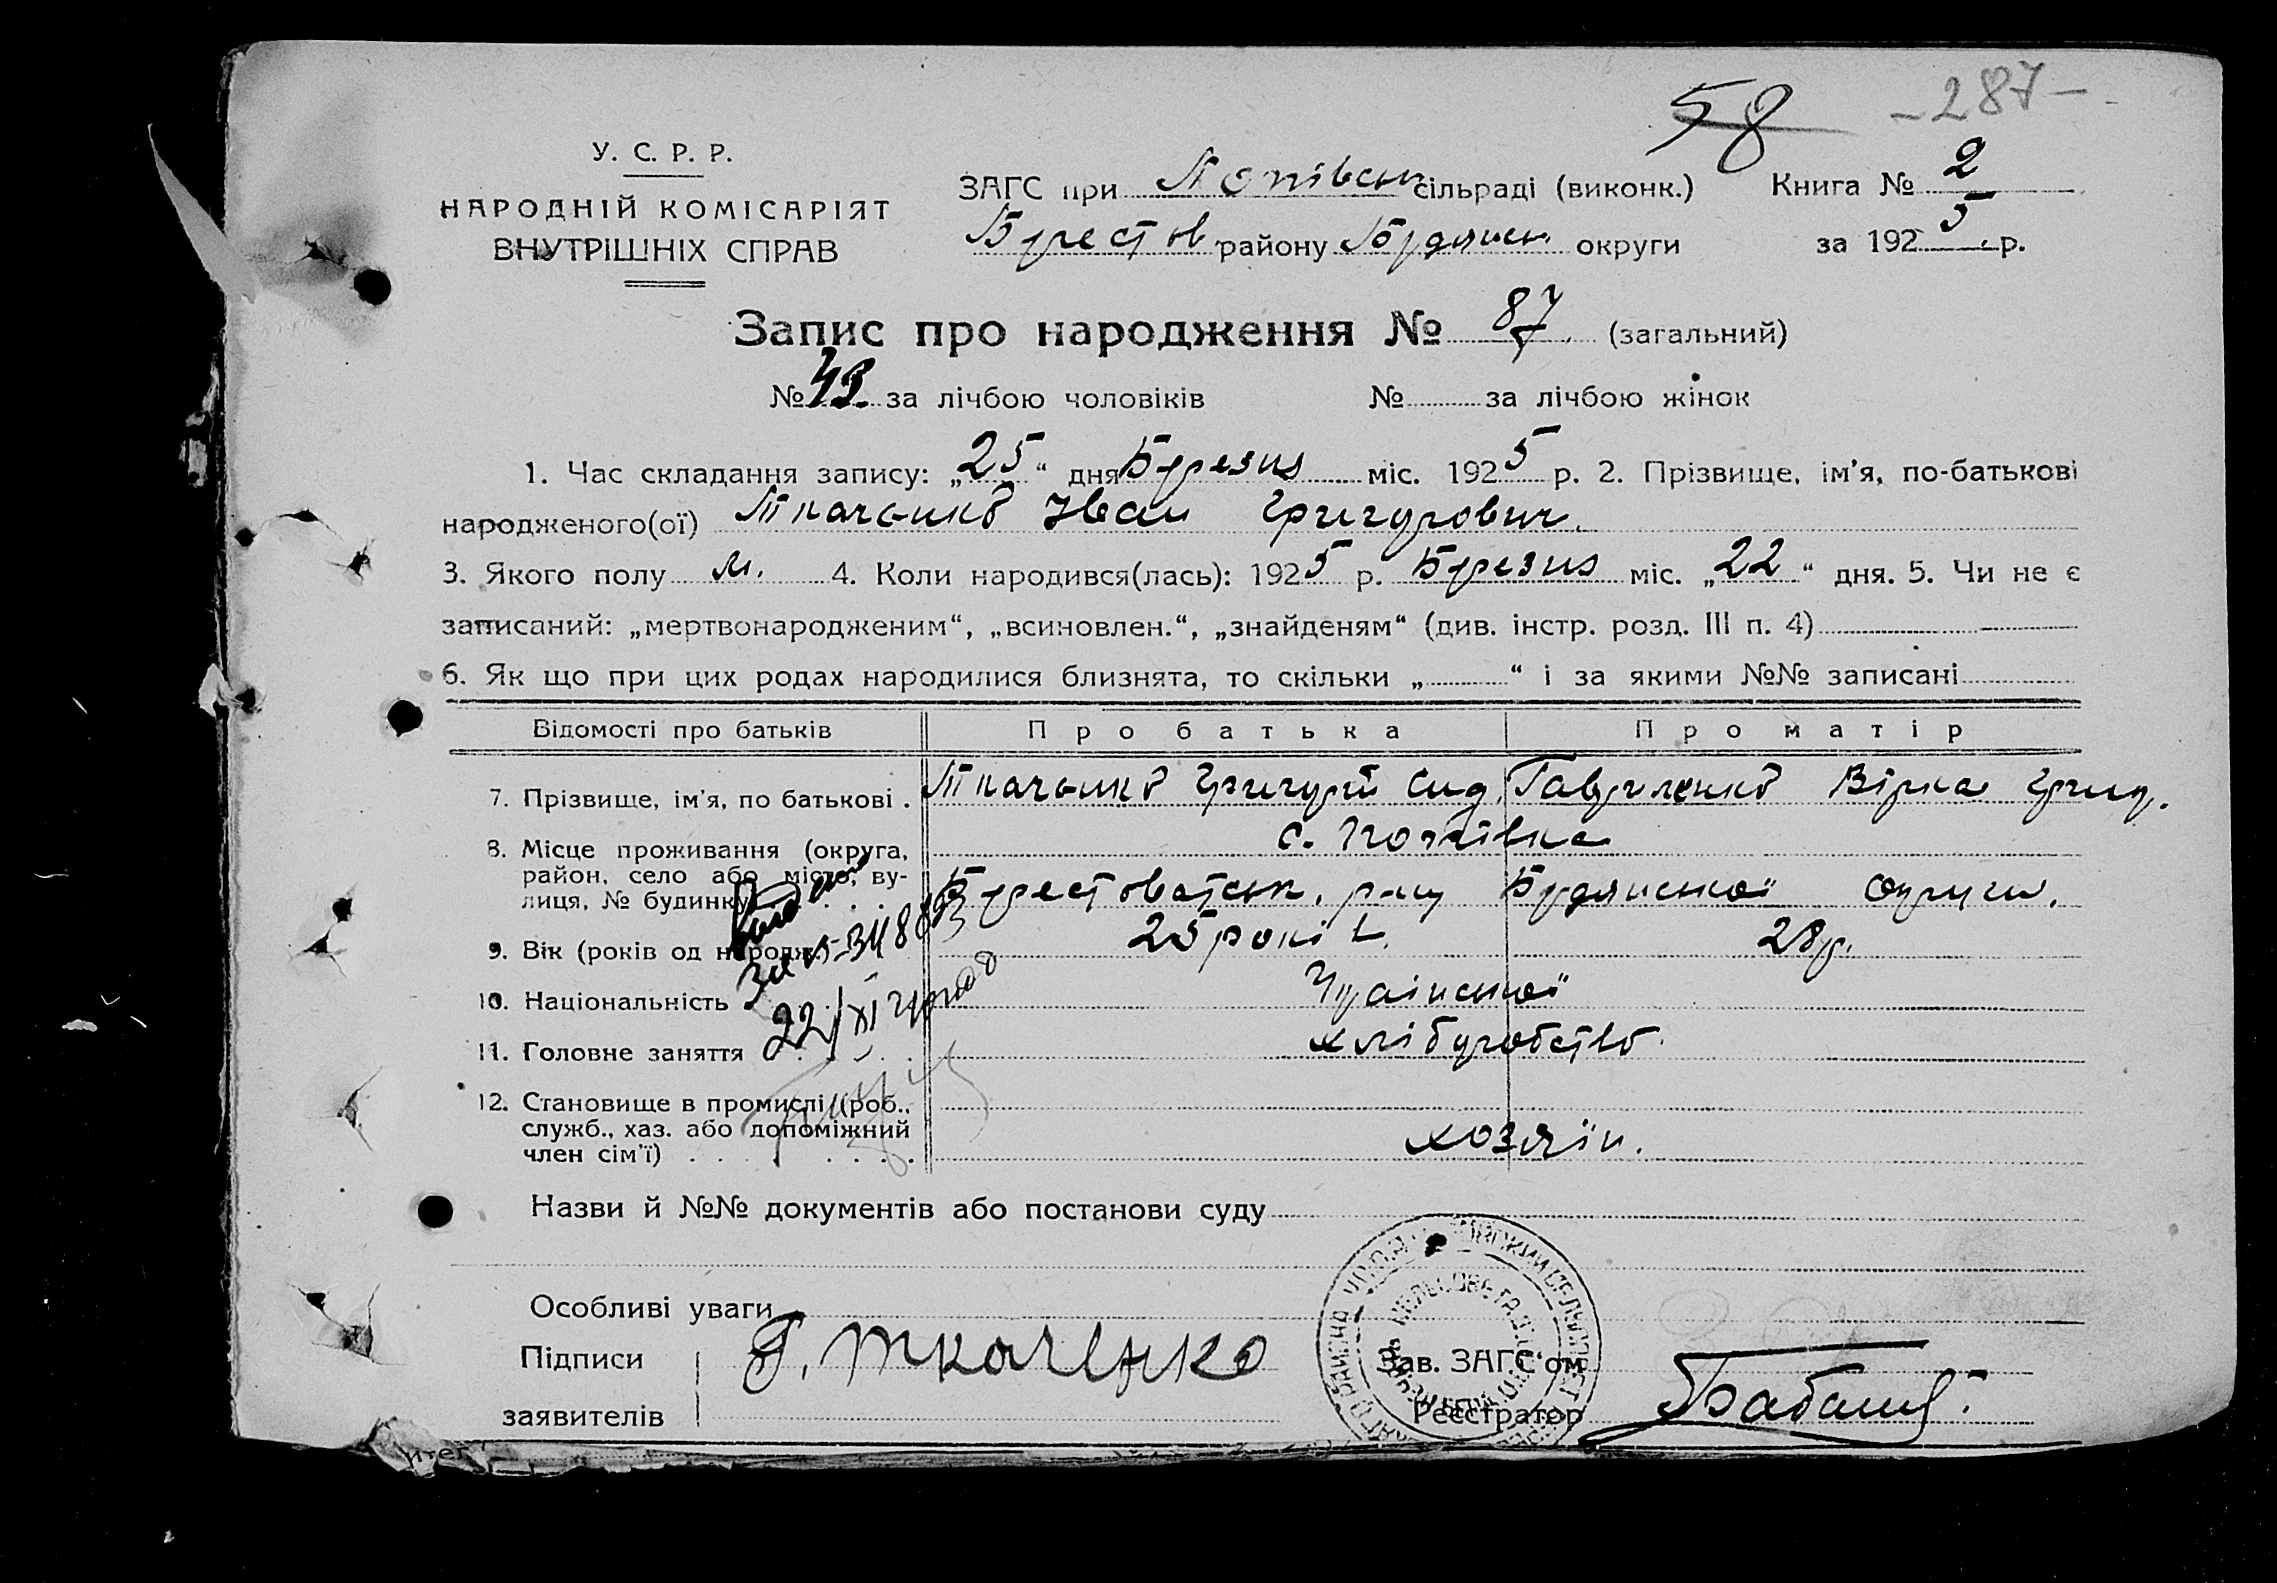 58 -287-
У. С. Р. Р.
НАРОДНІЙ КОМІСАРІЯТ
ВНУТРІШНІХ СПРАВ
ЗАГС при Попівськ сільраді (виконк.) Книга № 2
Берестов. району Бердянськ. округи за 1925 р.
Запис про народження № 87 (загальний)
№ 43 за лічбою чоловіків № за лічбою жінок
1. Час складання запису: „25“ дня Березня міс. 1925 р. 2. Прізвище, ім’я, по-батькові
народженого(ої) Ткаченко Іван Григорович.
3. Якого полу м. 4. Коли народився(лась): 1925 р. Березня міс. „22“ дня. 5. Чи не є
записаний: „мертвонародженим“, „всиновлен.“, „знайденям“ (див. інстр. розд. III п. 4)
6. Як що при цих родах народилися близнята, то скільки „ “ і за якими №№ записані
Відомості про батьків Про батька Про матір
7. Прізвище, ім’я, по батькові . Ткаченко Григорій Сид. Гавриленко Вірка Григ.
8. Місце проживання (округа, район, село або місто, вулиця, № будинку) с. Попівка
Берестоватськ. рай Бердянської округи.
9. Вік (років од народж.) 25 років 28 р.
10. Національність Української
11. Головне заняття хліборобство.
12. Становище в промислі (роб.,
служб., хаз. або допоміжний
член сім’ї) хозяїн.
22/XI
Назви й №№ документів або постанови суду
Особливі уваги
Підписи Г. Ткаченко Зав. ЗАГС‘ом
заявителів Реєстратор